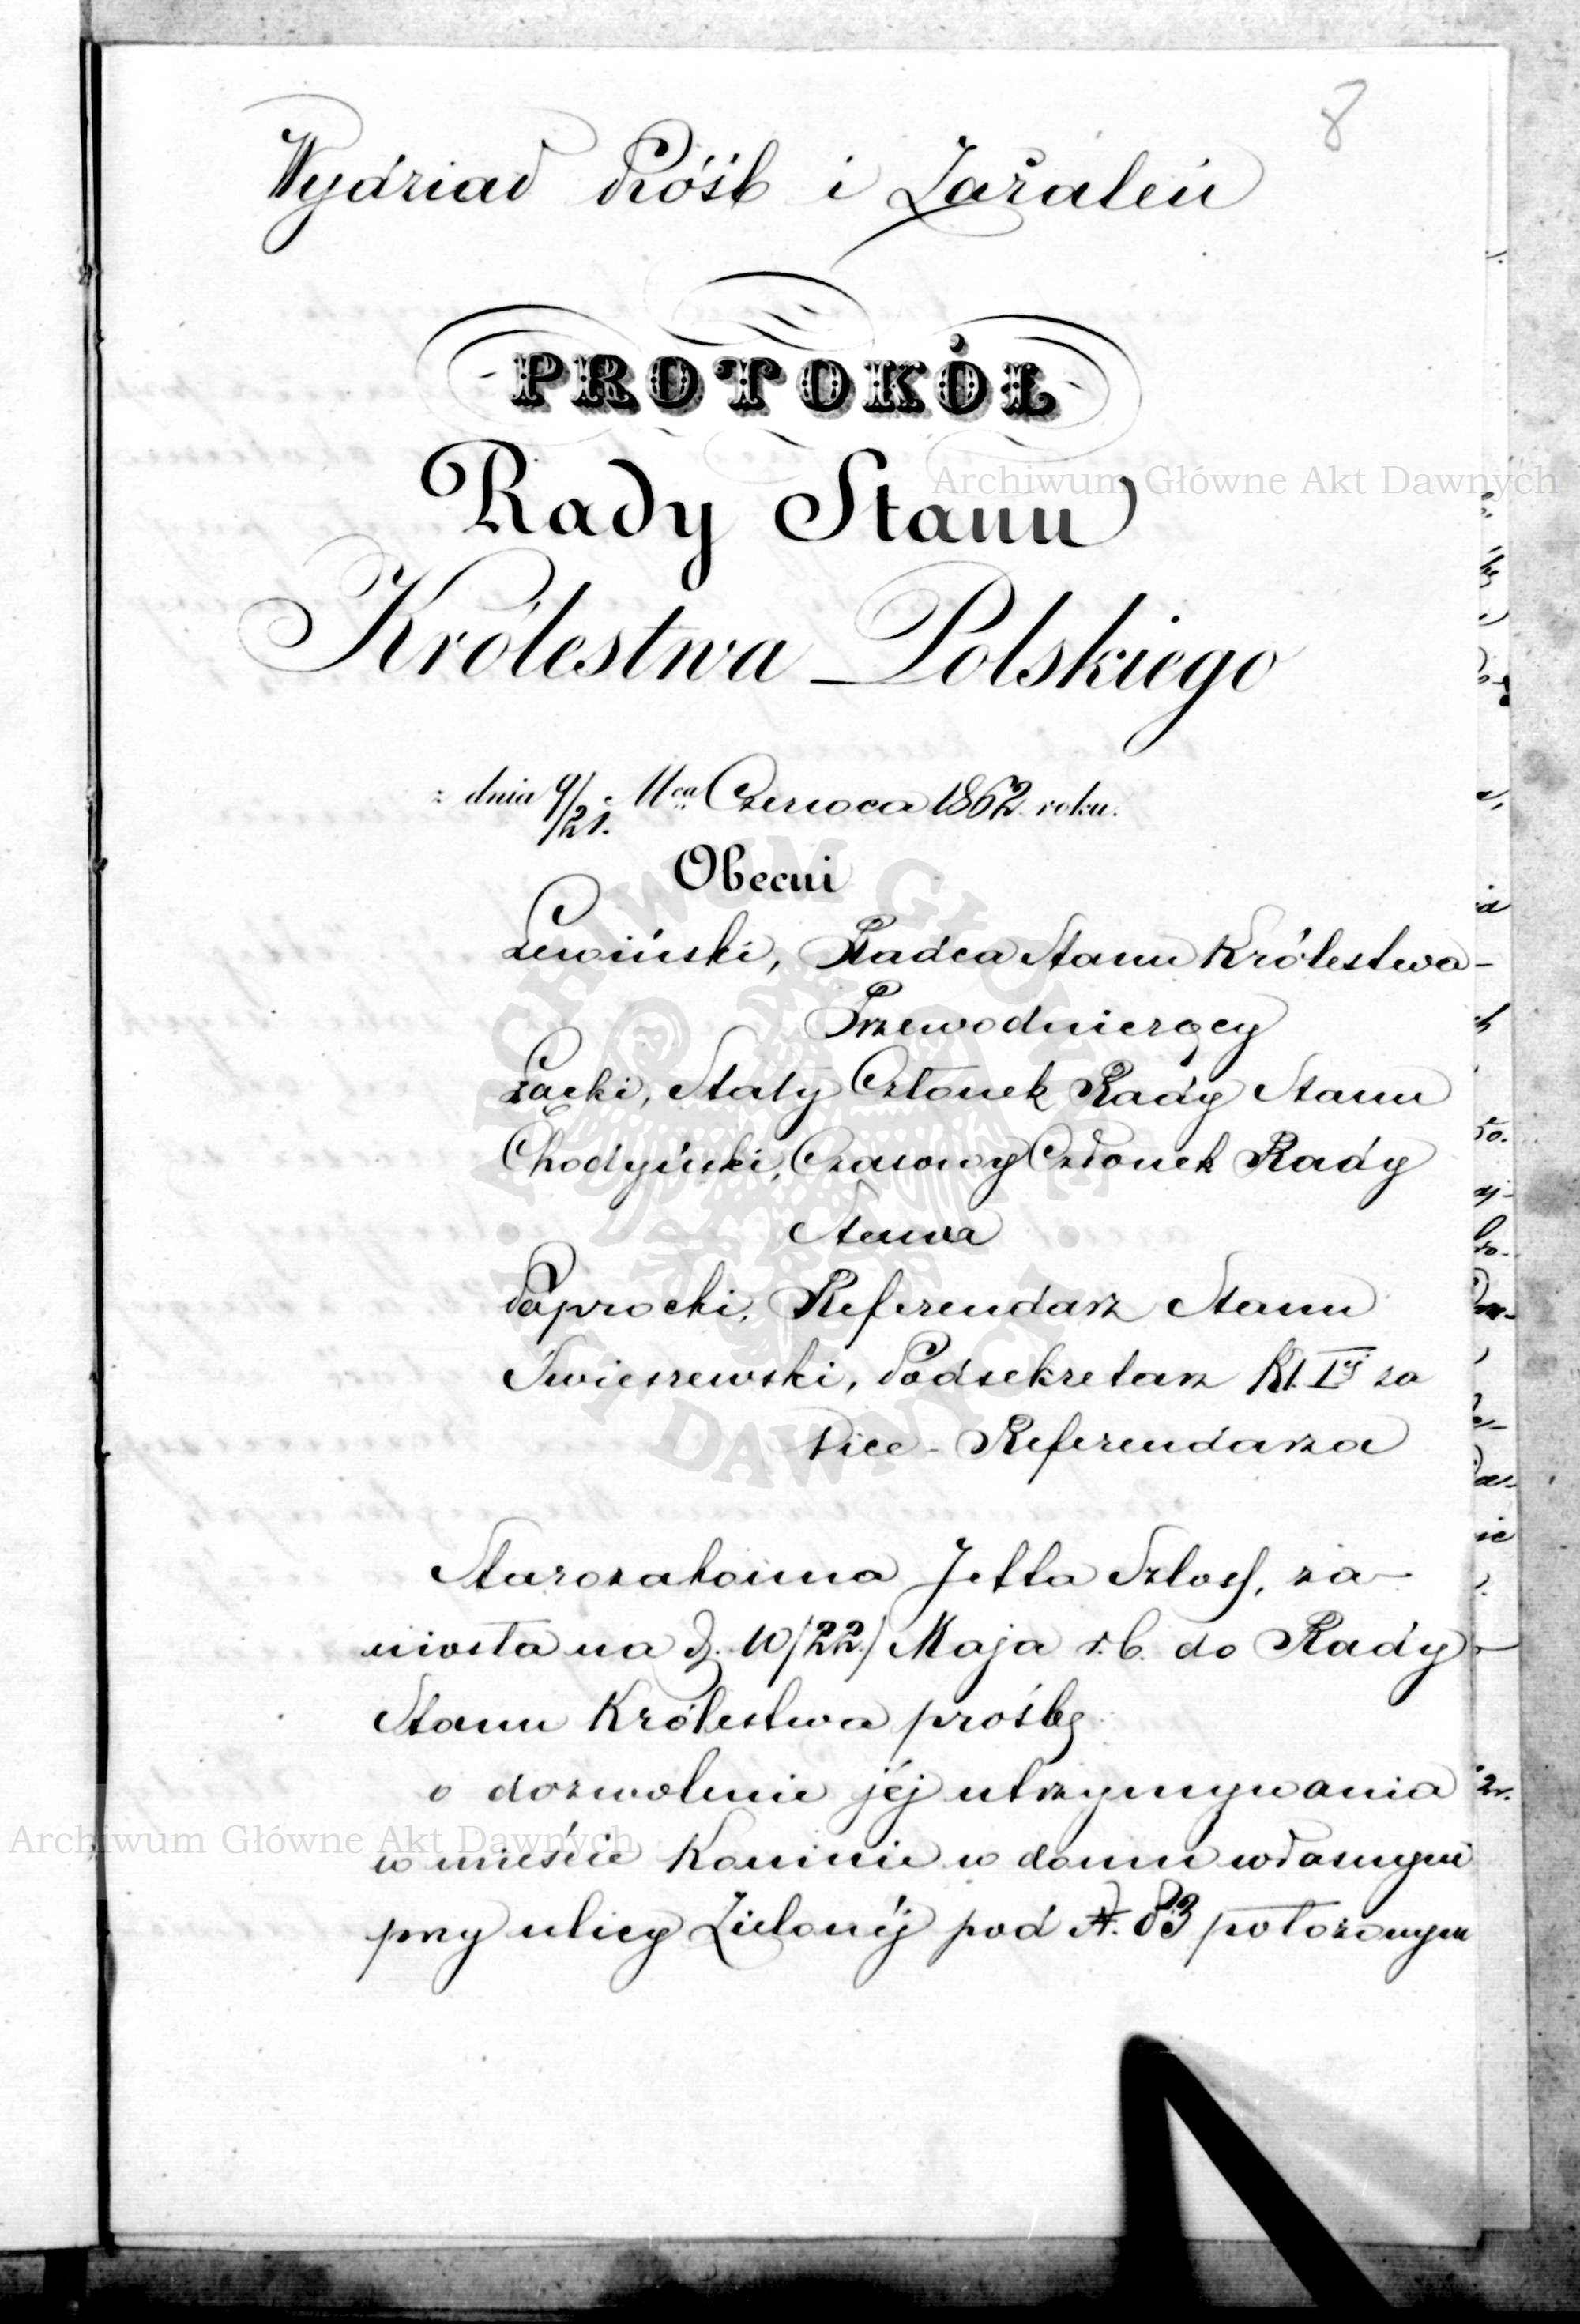 8
Wydział Próśb i Zażaleń
PROTOKÓŁ
Rady Stanu
Królestwa Polskiego
z dnia 9/21. Mca Czerwca 1862 roku.
Obecni
Lewiński, Radca Stanu Królestwa
Przewodniczący
Łącki, Stały Członek Rady Stanu
Chodyński, Czasowy Członek Rady
Stanu
Paprocki, Referendarz Stanu
Świeszewski, Podsekretarz Kl. Iéj za
Vice-Referendarza
Starozakonna Jetta Szlosf, za-
niosła na d. 10/22/ Maja r.b. do Rady
Stanu Królestwa prośbę
o dozwolenie jéj utrzymywania
w mieście Koninie w domu własnym
przy ulicy Zielonéj pod N. 83 położonym
Archiwum Główne Akt Dawnych
Archiwum Główne Akt Dawnych
ARCHIWUM GŁÓWNE AKT DAWNYCH